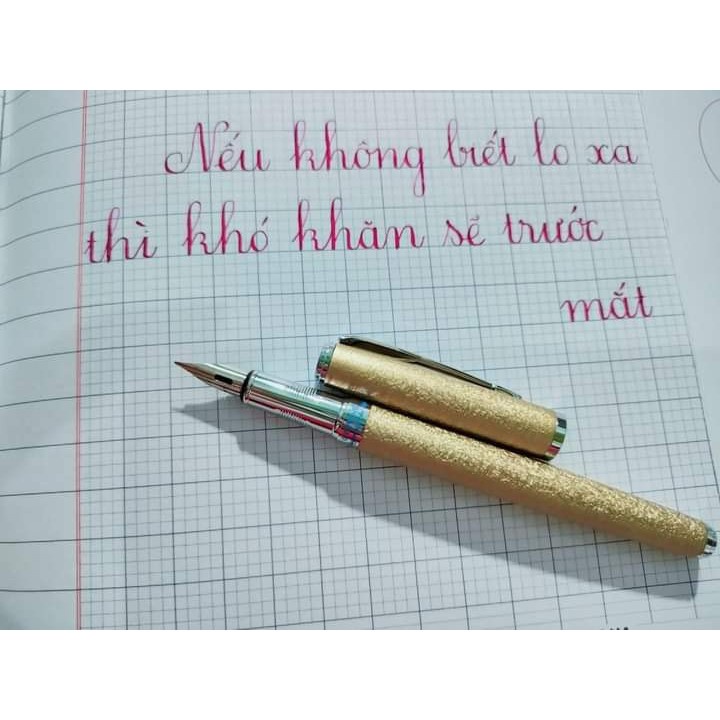 Nếu không biết lo xa
thì khó khăn sẽ trước
mắt